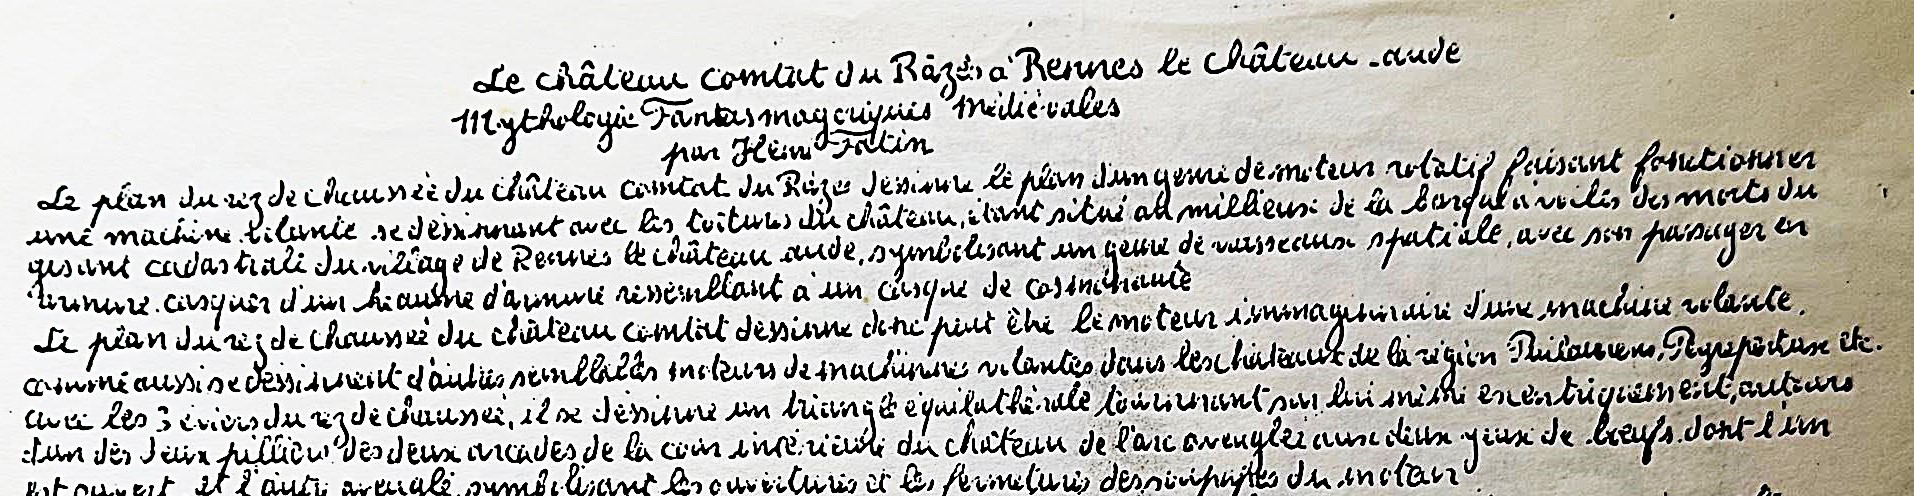 Le château comtat du Râzès à Rennes le château - aude
Mythologie Fantasmagoriques Médiévales
par Henri Fatin
Le plan du rez de chaussée du château comtat du Râzès dessinne le plan d'un genre de moteur rotatif faisant fonctionner
une machine volante se déssinnant avec les toitures du château, étant situé au millieux de la barque à voiles des morts du
gisant cadastrale du village de Rennes le château aude, symbolisant un genre de vaisseaux spatiale, avec son passager en
armure casquer d'un heaume d'armure ressemblant à un casque de cosmonaute
Le plan du rez de chaussée du château comtat dessinne donc peut être le moteur immaginaire d'une machine volante.
comme aussi se dessinnent d'autres semblables moteurs de machinnes volantes dans les châteaux de la région Puilaurens, Peyrepertuse etc.
avec les 3 éviers du rez de chaussée, il se déssinne un triangle équilathérale tournant sur lui même exentriquement, autours
d'un des deux pilliers des deux arcades de la cour intérieure du château de l'arc aveuglée aux deux yeux de bœufs dont l'un
est ouvert et l'autre aveuglé, symbolisant les ouvertures et les fermetures des soupapes du moteur